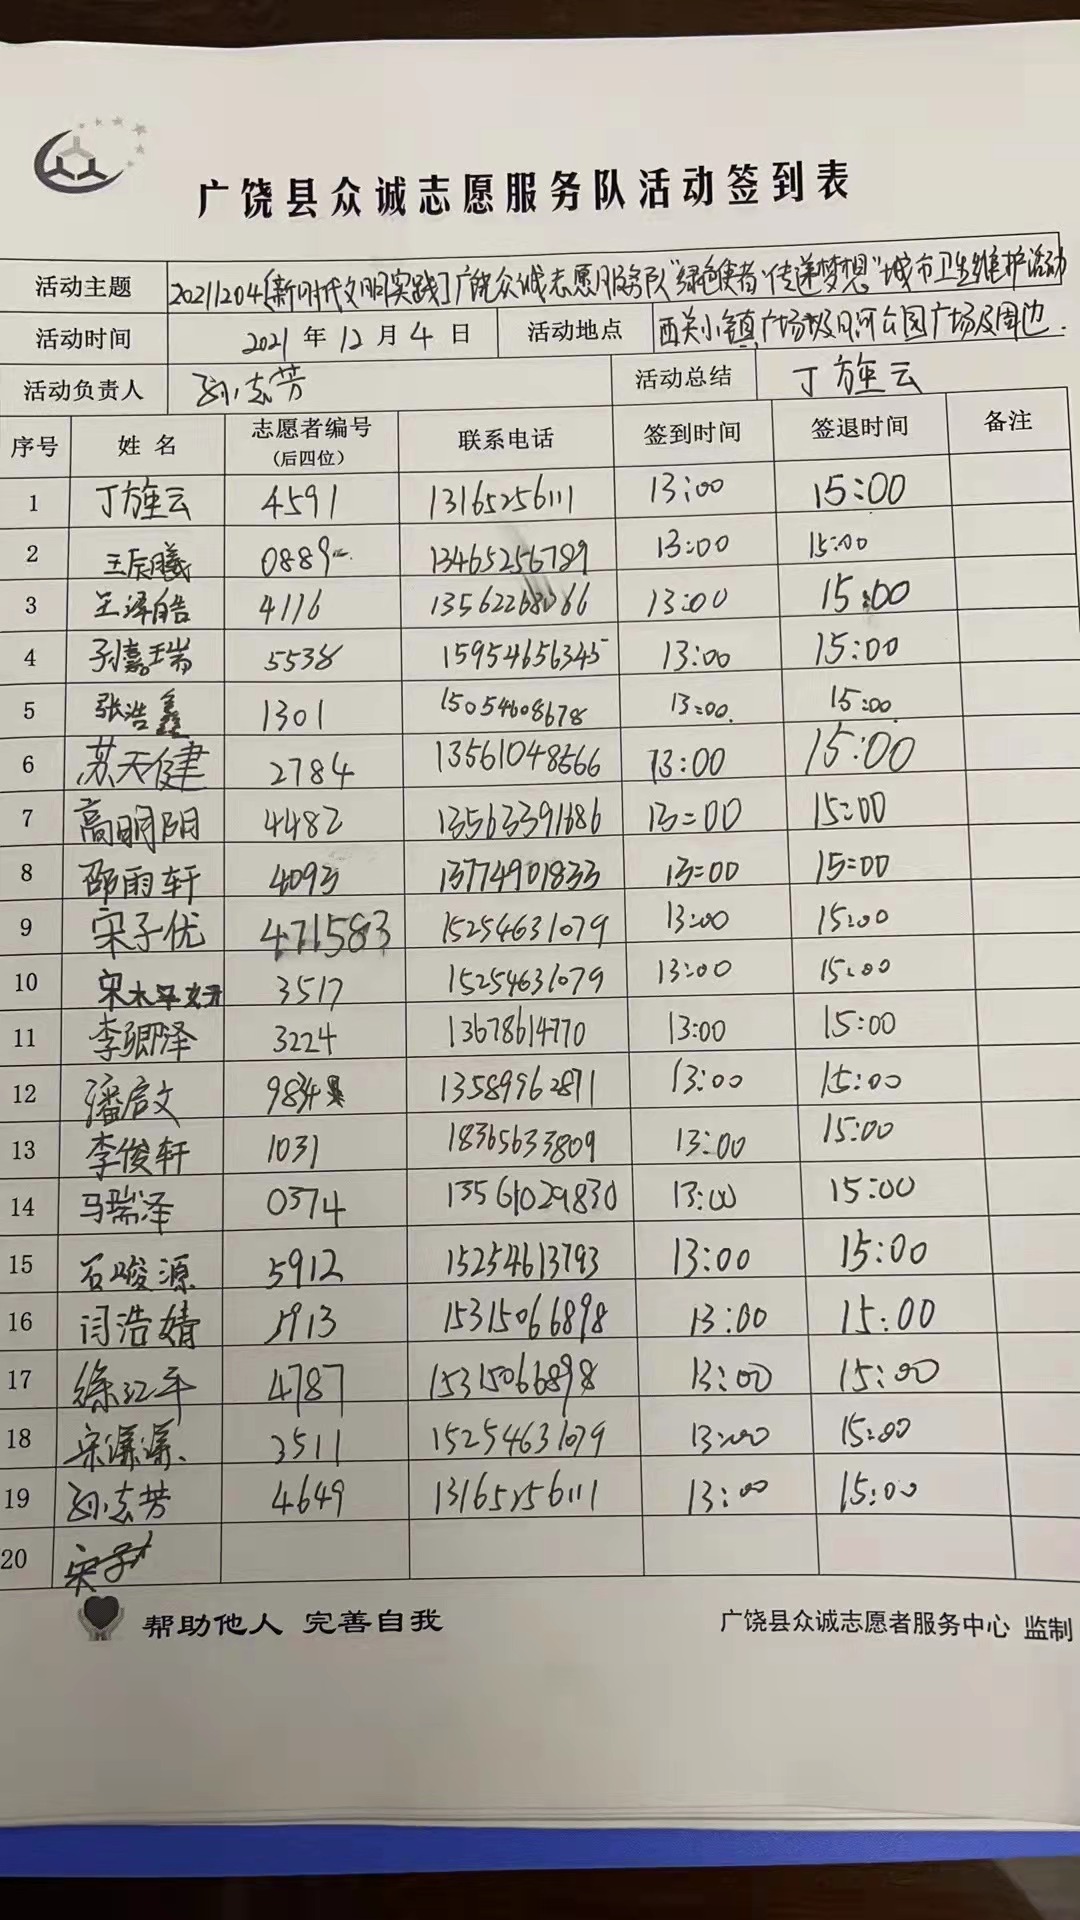 广饶县众诚志愿服务队活动签到表
活动主题 20211204[新时代文明实践]广饶众诚志愿服务队"绿色使者·传递梦想"城市卫生维护活动
活动时间 2021年12月4日 活动地点 西关小镇广场及月河公园广场及周边
活动负责人 孙志芳 活动总结 丁旋云
序号 姓名 志愿者编号(后四位) 联系电话 签到时间 签退时间 备注
1 丁旋云 4591 13165256111 13:00 15:00
2 王辰曦 0889 13465256789 13:00 15:00
3 王泽皓 4116 13:00 15:00
4 孙嘉瑞 5538 15954656345 13:00 15:00
5 张浩鑫 1301 15054608678 13:00 15:00
6 苏天健 2784 13561048566 13:00 15:00
7 高明阳 4482 13563391686 13:00 15:00
8 邵雨轩 4093 13774901833 13:00 15:00
9 宋子优 471583 15254631079 13:00 15:00
10 宋 3517 15254631079 13:00 15:00
11 李卿泽 3224 13678614770 13:00 15:00
12 潘启文 9834 13589962871 13:00 15:00
13 李俊轩 1031 18365633809 13:00 15:00
14 马瑞泽 0374 13561029830 13:00 15:00
15 石峻源 5912 15254613793 13:00 15:00
16 闫浩婧 5913 15315066898 13:00 15:00
17 徐江平 4787 15315066898 13:00 15:00
18 宋潇潇 3511 15254631079 13:00 15:00
19 孙志芳 4649 13165256111 13:00 15:00
20
帮助他人 完善自我 广饶县众诚志愿者服务中心 监制